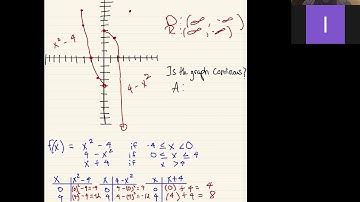 D: (∞, -∞)
R: (∞, -∞)
x² - 4
4 - x²
Is the graph continous?
A:
f(x) = x² - 4 if -4 ≤ x < 0
4 - x² if 0 ≤ x ≤ 4
x + 4 if x > 4
x | x² - 4 x | 4 - x² x | x + 4
0 | (0)² - 4 = -4 0 | 4 - (0)² = 4 0 | (0) + 4 = 4
4 | (4)² - 4 = 12 4 | 4 - (4)² = -12 4 | (4) + 4 = 8
I